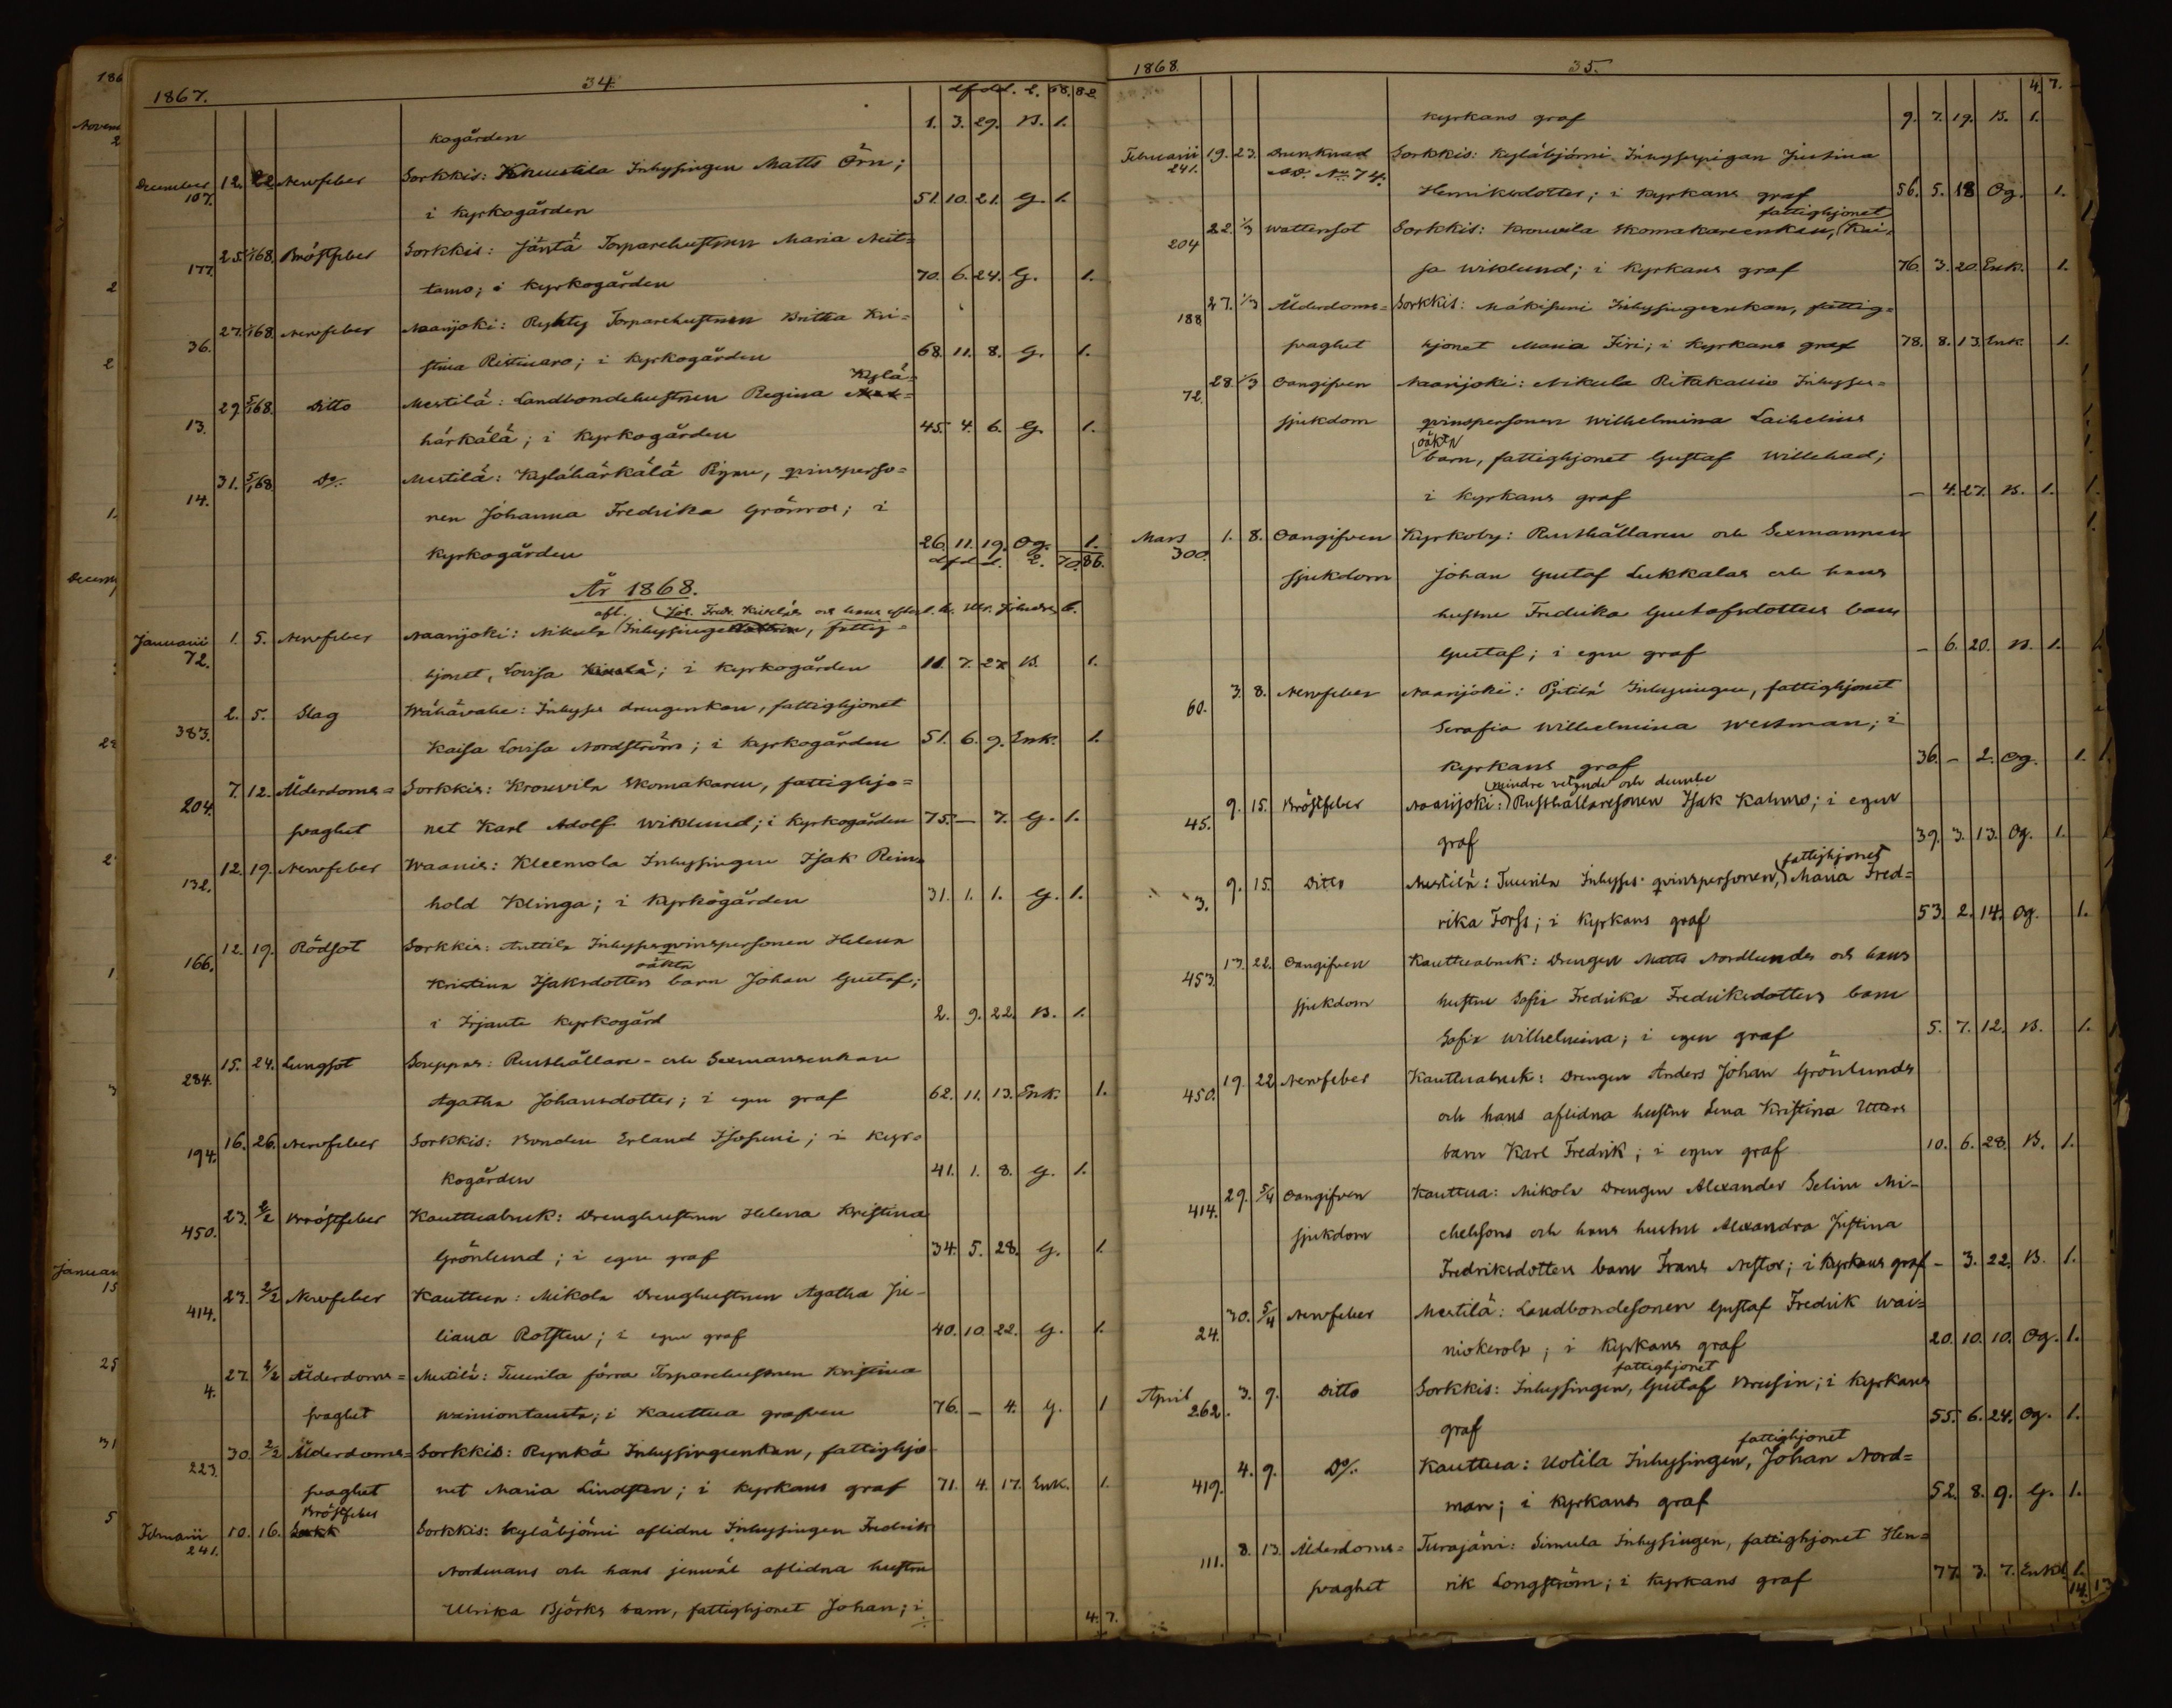 1867. 34. dfdd. 2. 68. 82
kogården 1. 3. 29. B. 1.
December 107. 12. 22 Nervfeber Sorkkis: Knuutila Inhysingen Matts Örn;
i kyrkogården 51. 10. 21. G. 1.
177. 25. 1/1 68. Bröstfeber Sorkkis: Jäntä Torparehustrun Maria Neit=
tamo; i kyrkogården 70. 6. 24. G. 1.
36. 27. 1/1 68. Nervfeber Naarijoki: Torparehustrun Britta Kri=
stina Ristinaro; i kyrkogården 68. 11. 8. G. 1.
13. 29 5/1 68. Ditto Mestilä: Landbondehustrun Regina Kylä=
härkälä; i kyrkogården 45. 4. 6. G. 1.
14. 31. 5/1 68 Do. Mestilä: Kylähärkälä Pigan, qvinsperso=
nen Johanna Fredrika Grönroos; i
kyrkogården 26. 11. 19. Og. 1.
dfdd. 2. 70. 86.
År 1868.
afl. Joh. Fredr. Kiviläs och hans efterl. h. b.
Januarii 72. 1. 5. Nervfeber Naarijoki: Nikula Inhysinge, fattig=
hjonet, Lovisa; i kyrkogården 11. 7. 27. B. 1.
383. 2. 5. Slag Wähävahe: Inhyses drengenkan, fattighjonet
Kaisa Lovisa Nordström; i kyrkogården 51. 6. 9. Enk. 1.
204. 7. 12. Ålderdoms= Sorkkis: Krouvila Skomakaren, fattighjo=
svaghet net Karl Adolf Wiklund; i kyrkogården 75. — 7. G. 1.
132. 12. 19. Nervfeber Waanis: Kleemola Inhysingen Isak Rein=
hold Klinga; i kyrkogården 31. 1. 1. G. 1.
166. 12. 19. Rödsot Sorkkis: Anttila Inhysesqvinspersonen Helena
Kristina Isaksdotters oäkta barn Johan Gustaf;
i Irjante kyrkogård 2. 9. 22. B. 1.
284. 15. 24. Lungsot Souppas: Rusthållare- och Sexmansenkan
Agatha Johansdotter; i egen graf 62. 11. 13. Enk. 1.
194. 16. 26. Nervfeber Sorkkis: Bonden Erland Isosuni; i kyr=
kogården 41. 1. 8. G. 1.
450. 23. 2/2 Bröstfeber Kauttuabruk: Drenghustrun Helena Kristina
Grönlund; i egen graf 34. 5. 28. G. 1.
414. 23. 2/2 Nervfeber Kauttua: Mikola Drenghustrun Agatha Ju-
liana Rotsten; i egen graf 40. 10. 22. G. 1.
4. 27. 2/2 Ålderdoms= Mestilä: Tuurila förra Torparehustrun Kristina
svaghet Wainiontausta; i Kauttua grafven 76. — 4. G. 1
223. 30. 2/2 Ålderdoms= Sorkkis: Rynkä Inhysingeenkan, fattighjo
svaghet net Maria Lindsten; i kyrkans graf 71. 4. 17. Enk. 1.
Februarii 241. 10. 16. Bröstfeber Sorkkis: Kyläbjörni aflidne Inhysingen Fredrik
Nordmans och hans jemväl aflidna hustru
Ulrika Björks barn, fattighjonet Johan; i
4. 7.
1868. 35. 4. 7.
kyrkans graf 9. 7. 19. B. 1.
Februarii 241. 19. 23. Drunknad Sorkkis: Kyläbjörni Inhysespigan Justina
No 74. Henriksdotter; i kyrkans graf 56. 5. 18 Og. 1.
204 22. 1/3 Wattensot Sorkkis: Krouvila Skomakareenkan, fattighjonet Kai=
sa Wiklund; i kyrkans graf 76. 3. 20. Enk. 1.
188 27. 1/3 Ålderdoms= Sorkkis: Mäkisuni Inhysingeenkan, fattig=
svaghet hjonet Maria Firi; i kyrkans graf 78. 8. 13. Enk. 1.
72. 28. 1/3 Oangifven Naarijoki: Nikula Ritakallio Inhyses=
sjukdom qvinspersonen Wilhelmina Laihelius
oäkta barn, fattighjonet Gustaf Willehad;
i kyrkans graf — 4. 27. B. 1.
Mars 300. 1. 8. Oangifven Kyrkoby: Rusthållaren och Sexmannen
sjukdom Johan Gustaf Lukkalas och hans
hustru Fredrika Gustafsdotters barn
Gustaf; i egen graf — 6. 20. B. 1.
60. 3. 8. Nervfeber Naarijoki: Inhysingen, fattighjonet
Serafia Wilhelmina Westman; i
kyrkans graf 36. — 2. Og. 1.
45. 9. 15. Bröstfeber Naarijoki: mindre vetande och dumbe Rusthållaresonen Isak Kahmo; i egen
graf 39. 3. 13. Og. 1.
3. 9. 15. Ditto Mestilä: Tuurila Inhyses qvinspersonen, fattighjonet Maria Fred=
rika Forss; i kyrkans graf 53. 2. 14. Og. 1.
453. 13. 22. Oangifven Kauttuabruk: Drengen Matts Nordlunds och hans
sjukdom hustru Sofia Fredrika Fredriksdotters barn
Sofia Wilhelmina; i egen graf 5. 7. 12. B. 1.
450. 19. 22 Nervfeber Kauttuabruk: Drengen Anders Johan Grönlunds
och hans aflidna hustru Lena Kristina Utters
barn Karl Fredrik; i egen graf 10. 6. 28. B. 1.
414. 29. 5/4 Oangifven Kauttua: Mikola Drengen Alexander Selim Mi-
sjukdom chelssons och hans hustru Alexandra Justina
Fredriksdotters barn Frans Nestor; i kyrkans graf — 3. 22. B. 1.
24. 30. 5/4 Nervfeber Mestilä: Landbondesonen Gustaf Fredrik Wai=
niokerola; i kyrkans graf 20. 10. 10. Og. 1.
April 262. 3. 9. Ditto Sorkkis: Inhysingen, fattighjonet Gustaf Brusin; i kyrkans
graf 55. 6. 24. Og. 1.
419. 4. 9. Do. Kauttua: Uotila Inhysingen, fattighjonet Johan Nord=
man; i kyrkans graf 52. 8. 9. G. 1.
111. 8. 13. Ålderdoms= Turajärvi: Simula Inhysingen, fattighjonet Hen=
svaghet rik Longström; i kyrkans graf 77. 3. 7. Enkl. 1.
14. 13